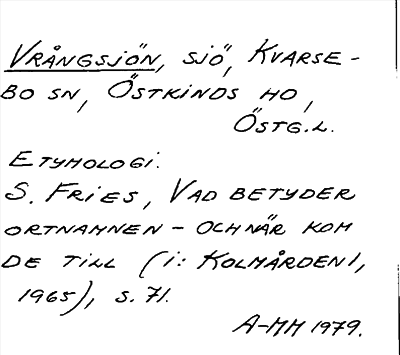 VRÅNGSJÖN, SJÖ, KVARSE-
BO SN, ÖSTKINDS HD,
ÖSTG.L.
ETYMOLOGI.
S. FRIES, VAD BETYDER
ORTNAMNEN - OCH NÄR KOM
DE TILL (I: KOLMÅRDEN 1,
1965), S. 71.
A-MH 1979.